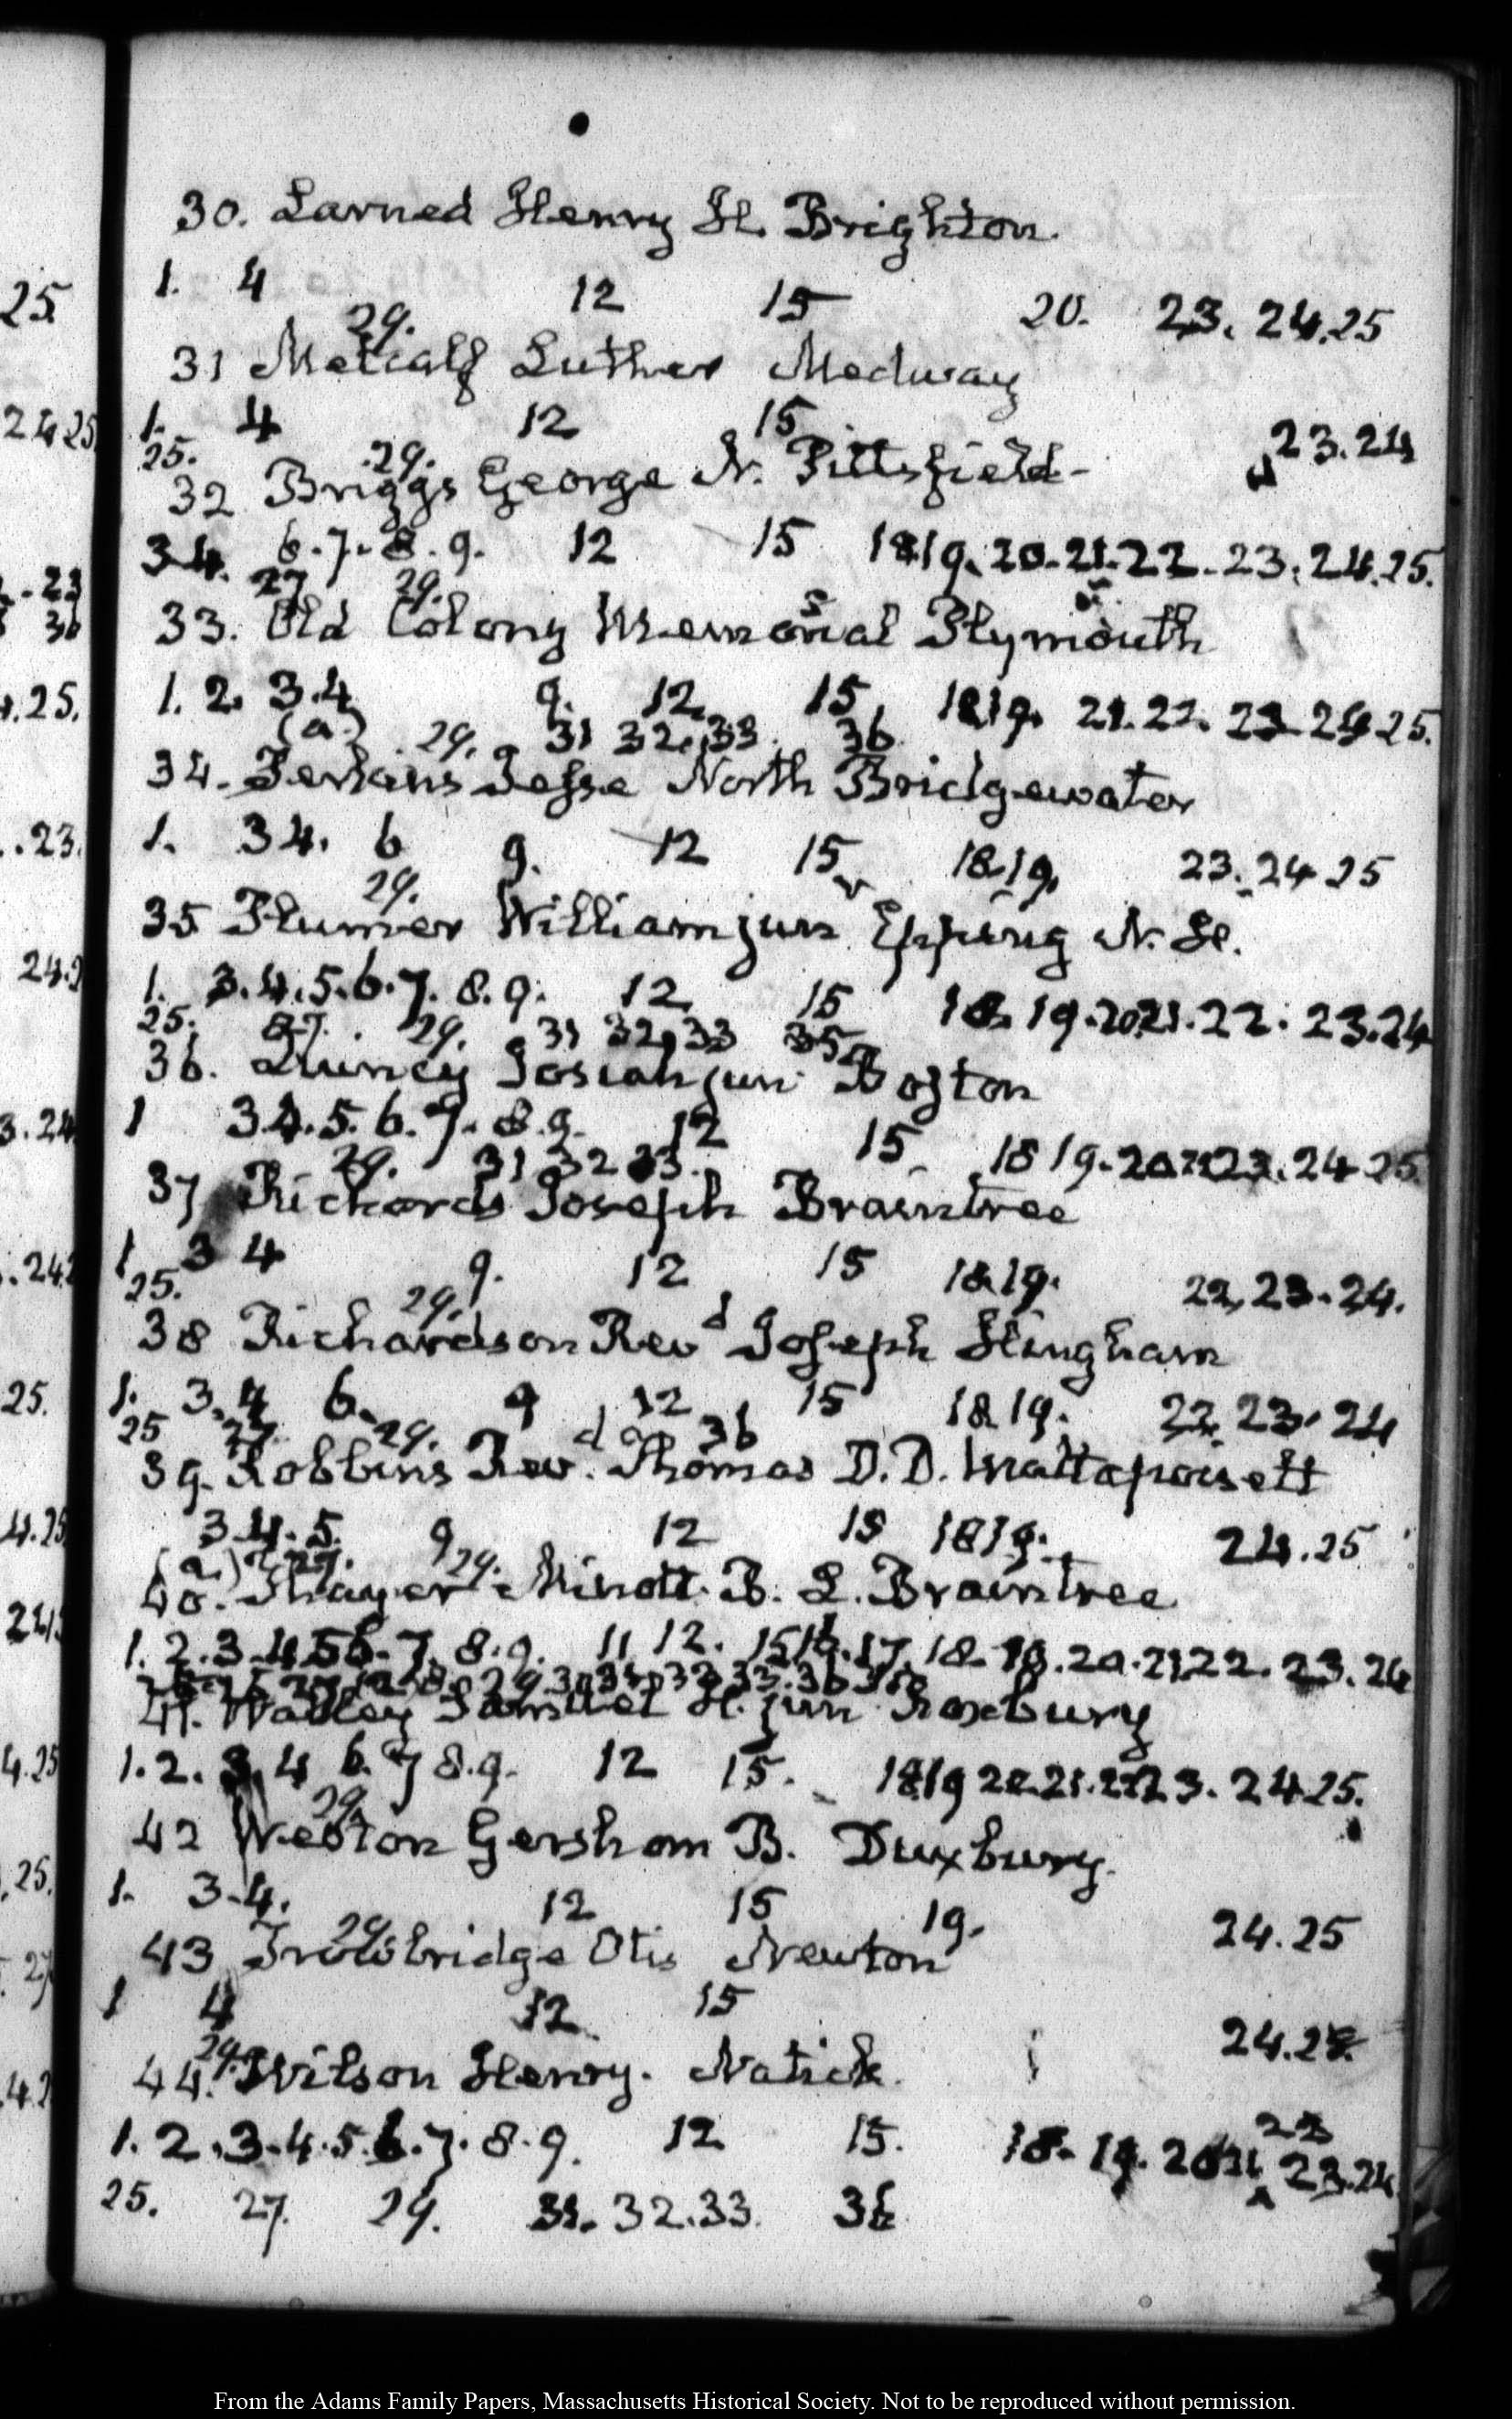 30. Larned Henry H. Brighton.
1. 4 12 15 20. 23. 24.25
29.
31 Metcalf Luther Medway
1. 4 12 15 23.24
25. 29.
32 Briggs George N. Pittsfield-
3 4. 6.7.8.9. 12 15 18 19. 20.21.22.23.24.25.
27 29.
33. Old Colony Memorial Plymouth
1. 2. 3.4 9. 12. 15, 18 19. 21.22. 23 24 25.
(a.) 29. 31 32.33. 36
34. Perkins Jesse North Bridgewater
1. 3 4. 6 9. 12 15 18.19. 23.24 25
29.
35 Plumer William junr Epping N. H.
1. 3.4.5.6.7.8.9. 12. 15 18. 19.20.21.22. 23.24
25. 27. 29. 31 32,33 35
36. Quincy Josiah junr Boston
1 3 4.5.6.7.8.9. 12 15 18 19. 20 21 23. 24 25
29. 31 32 33.
37 Richards Joseph Braintree
1 3 4 9. 12 15 18.19. 22, 23. 24.
25. 29.
38 Richardson Revd Joseph Hingham
1. 3.4 6. 9 12 15 18 19. 22. 23. 24
25 27. 29. 36
39. Robbins Revd. Thomas D.D. Mattapoisett
3.4.5. 9 12 15 18 19. 24.25
(a.) 27. 29.
40. Thayer Minott B. L. Braintree
1. 2.3.4 5 6.7. 8.9. 11 12. 15 16.17. 18. 19.20.21 22. 23. 24
41. Walley Samuel H. junr Roxbury
1.2. 3.4 6.7 8.9. 12 15. 18 19 20.21.22 23. 24.25.
29.
42 Weston Gershom B. Duxbury.
1. 3.4. 12 15 19. 24.25
29
43 Trowbridge Otis Newton
1 4 12. 15 24.25.
29.
44. Wilson Henry. Natick.
22
1. 2.3.4.5.6.7.8.9. 12 15. 18. 19. 20 21 23.24
25. 27. 29. 31. 32.33. 36
25.
24 25
23
36
.25.
.23.
25.
From the Adams Family Papers, Massachusetts Historical Society. Not to be reproduced without permission.